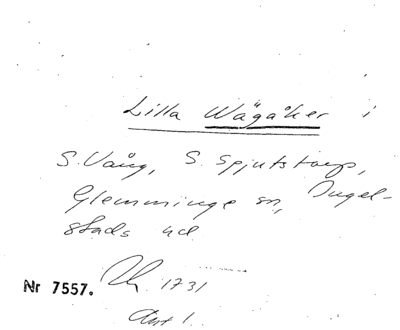 Lilla Wägåker i
S. Vång, S. Spjutstorp,
Glemminge sn, Ingel-
stads hd
Nr 7557. 1731
Akt 1.